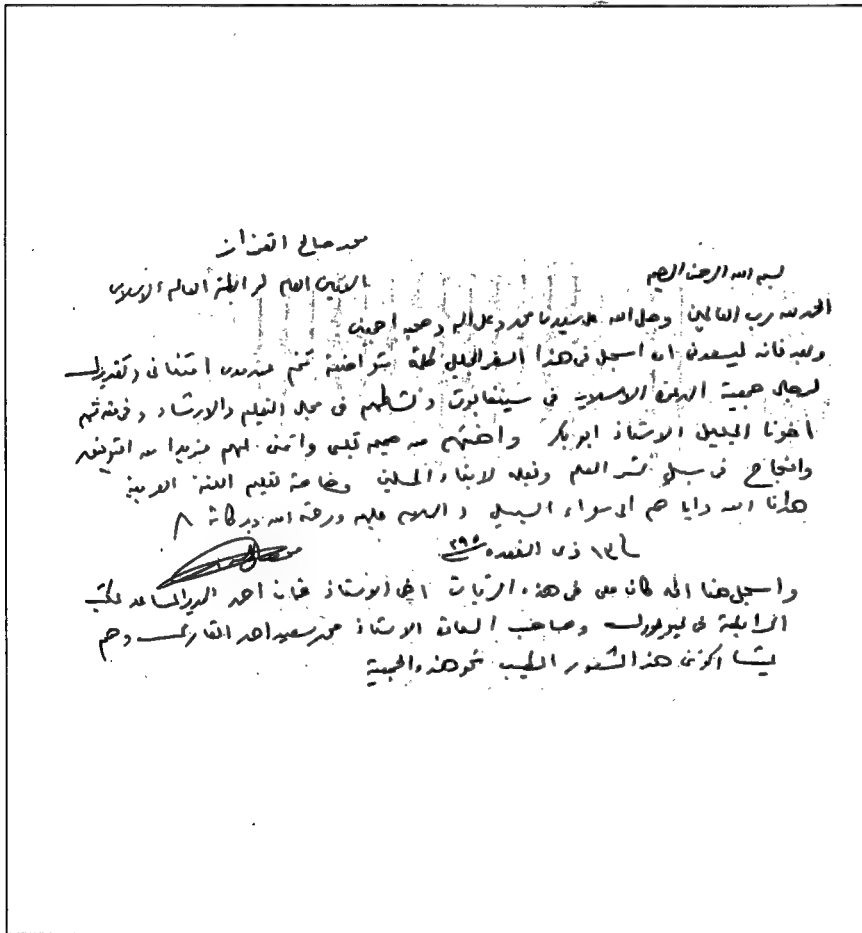 محمد صالح القزاز
الامين العام لرابطة العالم الاسلامي
بسم الله الرحمن الرحيم
الحمد لله رب العالمين وصلى الله على سيدنا محمد وعلى آله وصحبه اجمعين
وبعد فانه ليسعدني ان اسجل في هذا السفر الجليل كلمة متواضعة تنم عن مدى امتناني وتقديري
لرجال جمعية الدعوة الاسلامية في سينغابورة ونشاطهم في مجال التعليم والارشاد وفي مقدمتهم
أخونا الجليل الاستاذ ابو بكر واهنئهم من صميم قلبي واتمنى لهم مزيدا من التوفيق
والنجاح في سبيل نشر العلم ونقله لابناء المسلمين وخاصة تعليم اللغة العربية
هدانا الله وايا هم الى سواء السبيل والسلام عليكم ورحمة الله وبركاته
١٣ ذى القعدة ٣٩٥
واسجل هنا انه كان معي في هذه الزيارة اخي الاستاذ احمد المدير المساعد لمكتب
الرابطة في نيويورك وصاحب السعادة الاستاذ محمد سعيد احمد وهم
يشاركونني هذا الشعور الطيب نحو هذه الجمعية